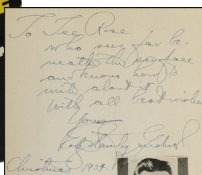 To Lee Rose
who sees far be-
neath the surface
and knows how to
write about it
With all best wishes
Yours
Christmas 1934